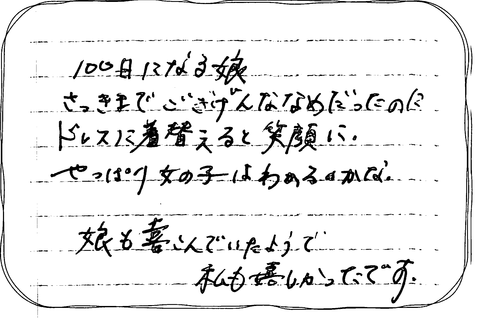 100日になる娘
さっきまでごきげんななめだったのに
ドレスに着替えると笑顔に。
やっぱり女の子はわかるのかな。
娘も喜こんでいたようで
私も嬉しかったです。